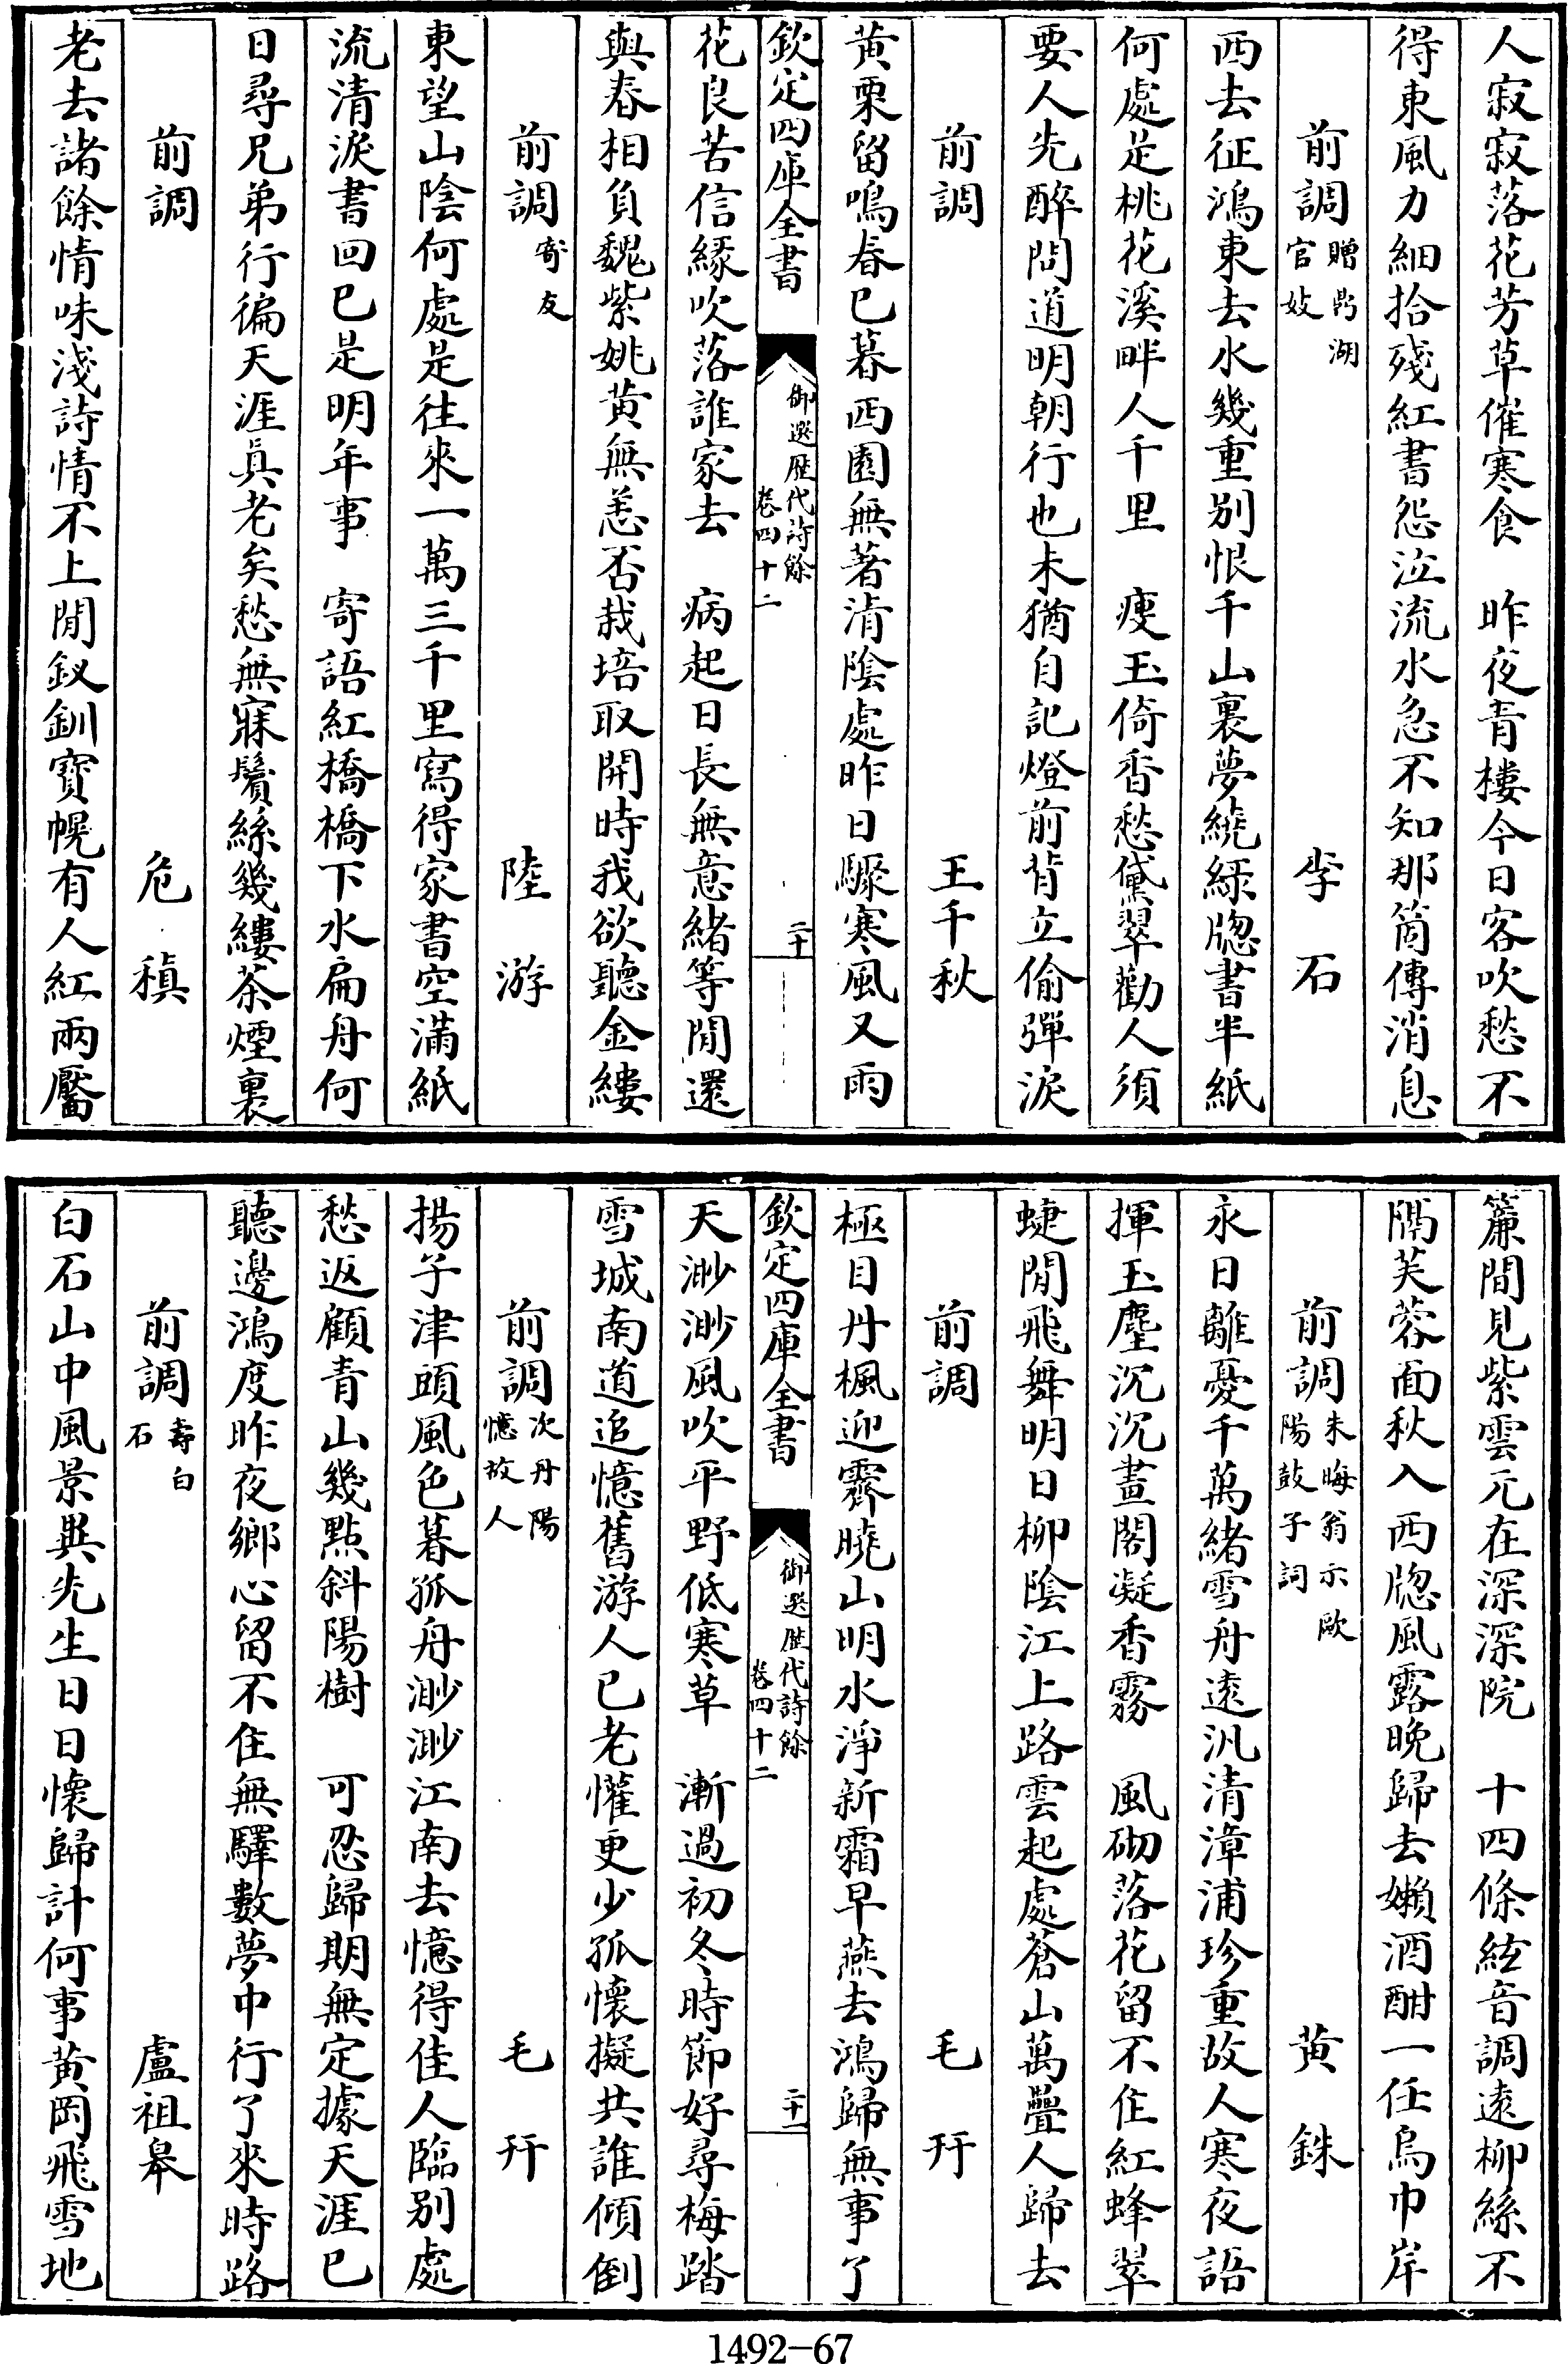 人寂寂落花芳草催寒食　昨夜青樓今日客吹愁不
得東風力細拾殘紅書怨泣流水急不知那箇傳消息
前調贈鼎湖官妓　李石
西去征鴻東去水幾重別恨千山裏夢繞綠牕書半紙
何處是桃花溪畔人千里　瘦玉倚香愁黛翠勸人須
要人先醉問道明朝行也未猶自記燈前背立偷彈淚
前調　王千秋
黄栗留鳴春已暮西園無著清陰處昨日驟寒風又雨
欽定四庫全書　御選歷代詩餘卷四十二　二十
花良苦信緣吹落誰家去　病起日長無意緒等閒還
與春相負魏紫姚黄無恙否栽培取開時我欲聽金縷
前調寄友　陸游
東望山陰何處是往來一萬三千里寫得家書空滿紙
流清淚書回已是明年事　寄語紅橋橋下水扁舟何
日尋兄弟行徧天涯真老矣愁無寐鬢絲幾縷茶煙裏
前調　危稹
老去諸餘情味淺詩情不上閒釵釧寶幌有人紅兩靨
簾間見紫雲元在深深院　十四條絃音調遠柳絲不
隔芙蓉面秋入西牕風露晚歸去嬾酒酣一任烏巾岸
前調朱晦翁示歐陽鼓子詞　黄銖
永日離憂千萬緒雪舟遠汎清漳浦珍重故人寒夜語
揮玉麈沉沉畫閣凝香霧　風砌落花留不住紅蜂翠
蜨閒飛舞明日柳陰江上路雲起處蒼山萬疊人歸去
前調　毛幵
極目丹楓迎霽曉山明水淨新霜早燕去鴻歸無事了
欽定四庫全書　御選歷代詩餘卷四十二　二十一
天渺渺風吹平野低寒草　漸過初冬時節好尋梅踏
雪城南道追憶舊游人已老懽更少孤懷擬共誰傾倒
前調次丹陽憶故人　毛幵
揚子津頭風色暮孤舟渺渺江南去憶得佳人臨別處
愁返顧青山幾點斜陽樹　可忍歸期無定據天涯已
聽邊鴻度昨夜鄉心留不住無驛數夢中行了來時路
前調壽白石　盧祖皋
白石山中風景異先生日日懷歸計何事黄岡飛雪地
1492-67